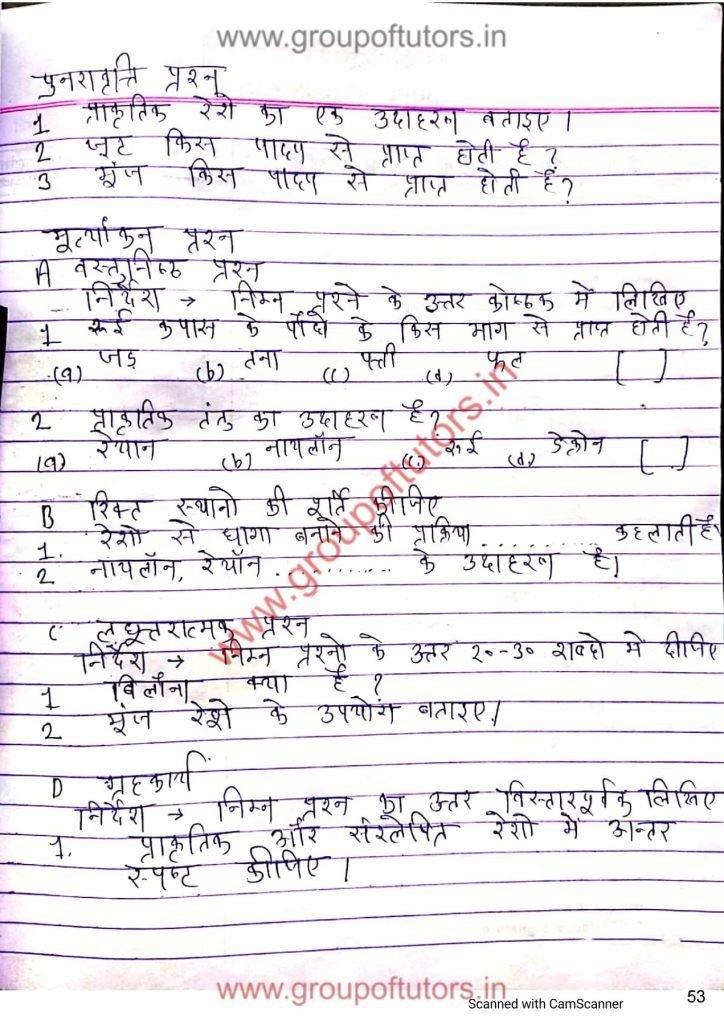 www.groupoftutors.in
पुनरावृत्ति प्रश्न
1 प्राकृतिक रेशे का एक उदाहरण बताइए।
2 जूट किस पादप से प्राप्त होती है?
3 मूंज किस पादप से प्राप्त होती है?
मूल्यांकन प्रश्न
A वस्तुनिष्ठ प्रश्न
निर्देश → निम्न प्रश्नो के उत्तर कोष्ठक में लिखिए
1 रूई कपास के पौधे के किस भाग से प्राप्त होती है?
(a) जड़ (b) तना (c) पत्ती (d) फल [ ]
2 प्राकृतिक तंतु का उदाहरण है?
(a) रेयान (b) नायलॉन (c) रूई (d) डेक्रोन [ ]
B रिक्त स्थानो की पूर्ति कीजिए
1. रेशो से धागा बनाने की प्रक्रिया .......... कहलाती है
2 नायलॉन, रेयॉन ............ के उदाहरण है।
www.groupoftutors.in
C लघूत्तरात्मक प्रश्न
निर्देश → निम्न प्रश्नो के उत्तर २०-३० शब्दो में दीजिए
1 बिलौना क्या है?
2 मूंज रेशे के उपयोग बताइए।
D ग्रहकार्य
निर्देश → निम्न प्रश्न का उत्तर विस्तारपूर्वक लिखिए
1. प्राकृतिक और संश्लेषित रेशो में अन्तर
स्पष्ट कीजिए।
www.groupoftutors.in
Scanned with CamScanner
53